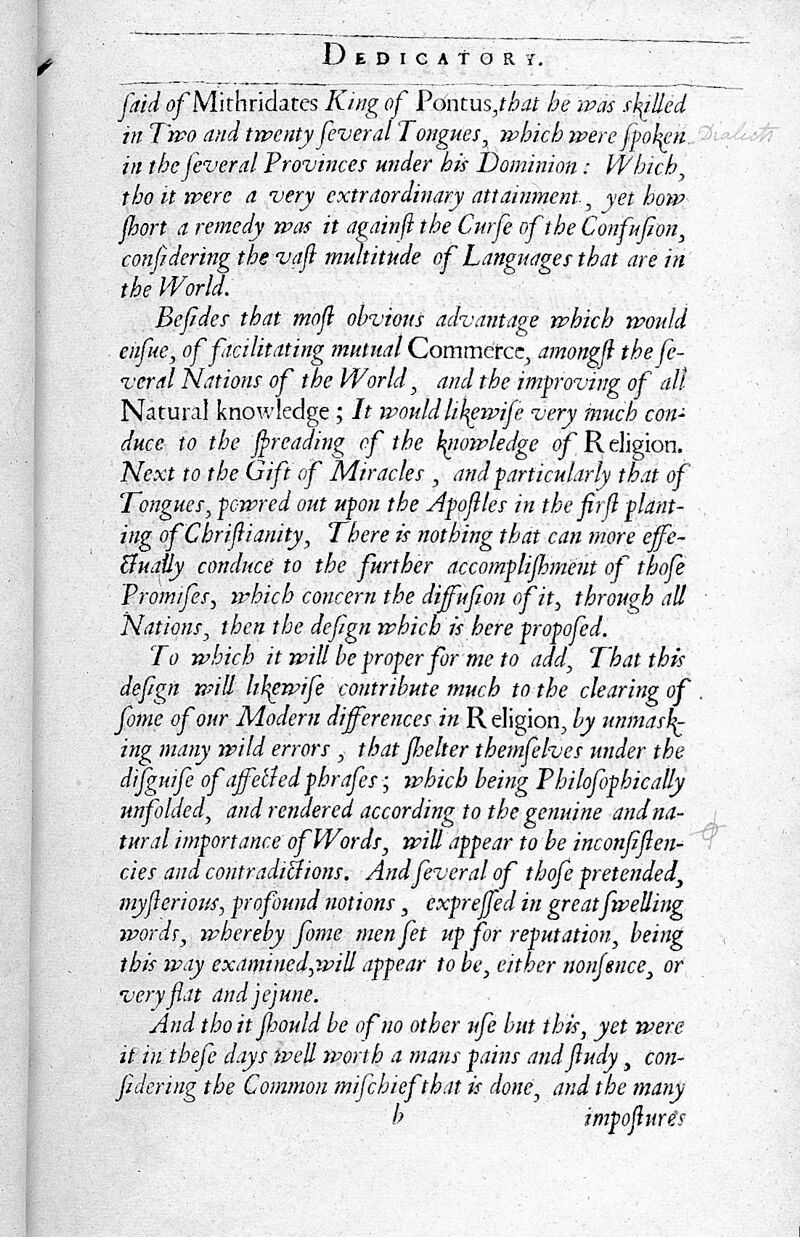 DEDICATORY.
ſaid of Mithridates King of Pontus, that he was skilled
in Two and twenty ſeveral Tongues, which were ſpoken
Dialects
in the ſeveral Provinces under his Dominion: Which,
tho it were a very extraordinary attainment, yet how
ſhort a remedy was it againſt the Curſe of the Confuſion,
conſidering the vaſt multitude of Languages that are in
the World.
Beſides that moſt obvious advantage which would
enſue, of facilitating mutual Commerce, amongſt the ſe-
veral Nations of the World, and the improving of all
Natural knowledge; It would likewiſe very much con-
duce to the ſpreading of the knowledge of Religion.
Next to the Gift of Miracles, and particularly that of
Tongues, powred out upon the Apoſtles in the firſt plant-
ing of Chriſtianity, There is nothing that can more effe-
ctually conduce to the further accompliſhment of thoſe
Promiſes, which concern the diffuſion of it, through all
Nations, then the deſign which is here propoſed.
To which it will be proper for me to add, That this
deſign will likewiſe contribute much to the clearing of
ſome of our Modern differences in Religion, by unmask-
ing many wild errors, that ſhelter themſelves under the
diſguiſe of affected phraſes; which being Philoſophically
unfolded, and rendered according to the genuine and na-
tural importance of Words, will appear to be inconſiſten-
cies and contradictions. And ſeveral of thoſe pretended,
myſterious, profound notions, expreſſed in great ſwelling
words, whereby ſome men ſet up for reputation, being
this way examined, will appear to be, either nonſence, or
very flat and jejune.
And tho it ſhould be of no other uſe but this, yet were
it in theſe days well worth a mans pains and ſtudy, con-
ſidering the Common miſchief that is done, and the many
b
impoſtures